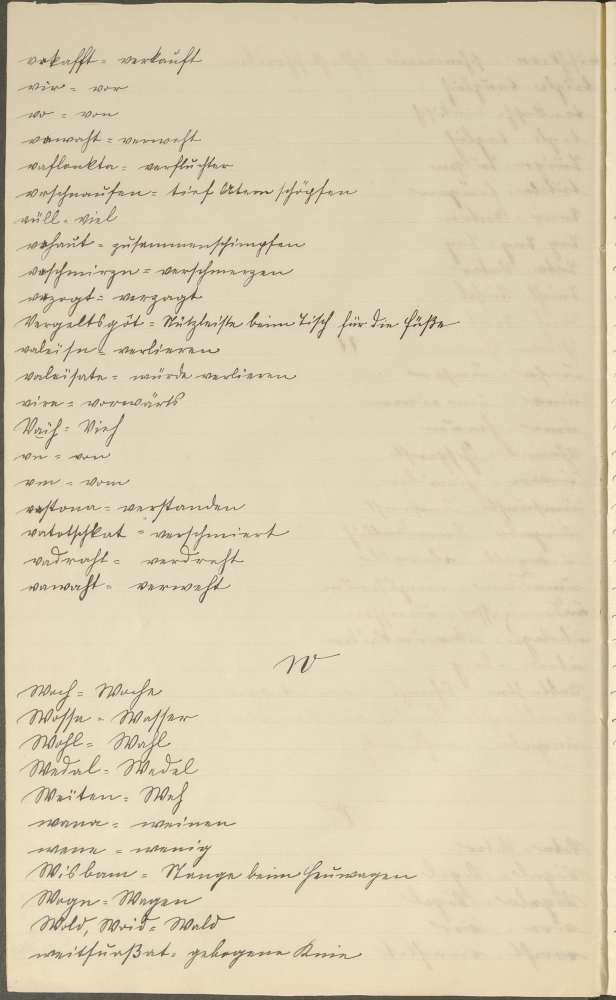 vakafft = verkauft
vir = vor
vo = von
vawaht = verweht
vaflonkta = verfluchter
vaschnaufen = tief Atem schöpfen
vüll = viel
vahaut = zusammenschimpfen
vaschmirzn = verschmerzen
vazogt = verzagt
Vergeltsgöt = Stützleiste beim Tisch für die Füße
valeisn = verlieren
valeisate = würde verlieren
vire = vorwärts
Vaih = Vieh
vn = von
vm = vom
vastona = verstanden
vatotschkat = verschmiert
vadraht = verdreht
vawaht = verweht
W
Woch = Woche
Wossa = Wasser
Wohl = Wahl
Wedal = Wedel
Weiten = Weh
wana = weinen
wene = wenig
Wisbam = Stange beim Heuwagen
Wogn = Wagen
Wold, Woid = Wald
gebogene Knie